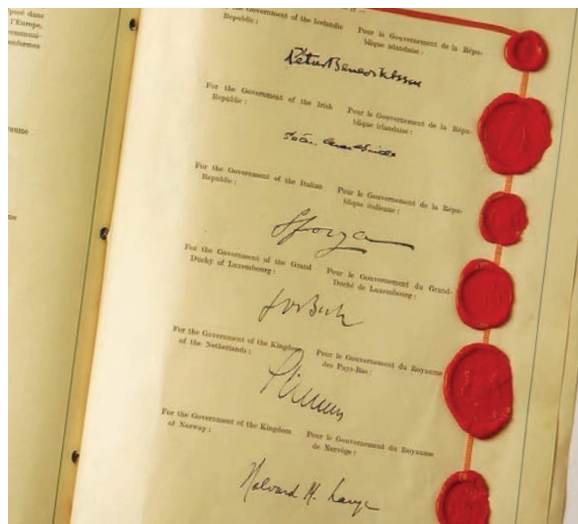 posé dans
l'Europe.
communi-
conformes
aume
ne
Government of the Icelandic
Republic :
Pour le Gouvernement de la Répu-
blique islandaise :
Pétur Benediktsson
For the Government of the Irish
Republic :
Pour le Gouvernement de la Répu-
blique irlandaise :
For the Government of the Italian
Republic :
Pour le Gouvernement de la Répu-
blique italienne :
Sforza
For the Government of the Grand
Duchy of Luxembourg :
Pour le Gouvernement du Grand-
Duché de Luxembourg :
Jos Bech
For the Government of the Kingdom
of the Netherlands :
Pour le Gouvernement du Royaume
des Pays-Bas :
For the Government of the Kingdom
of Norway :
Pour le Gouvernement du Royaume
de Norvège :
Halvard M. Lange